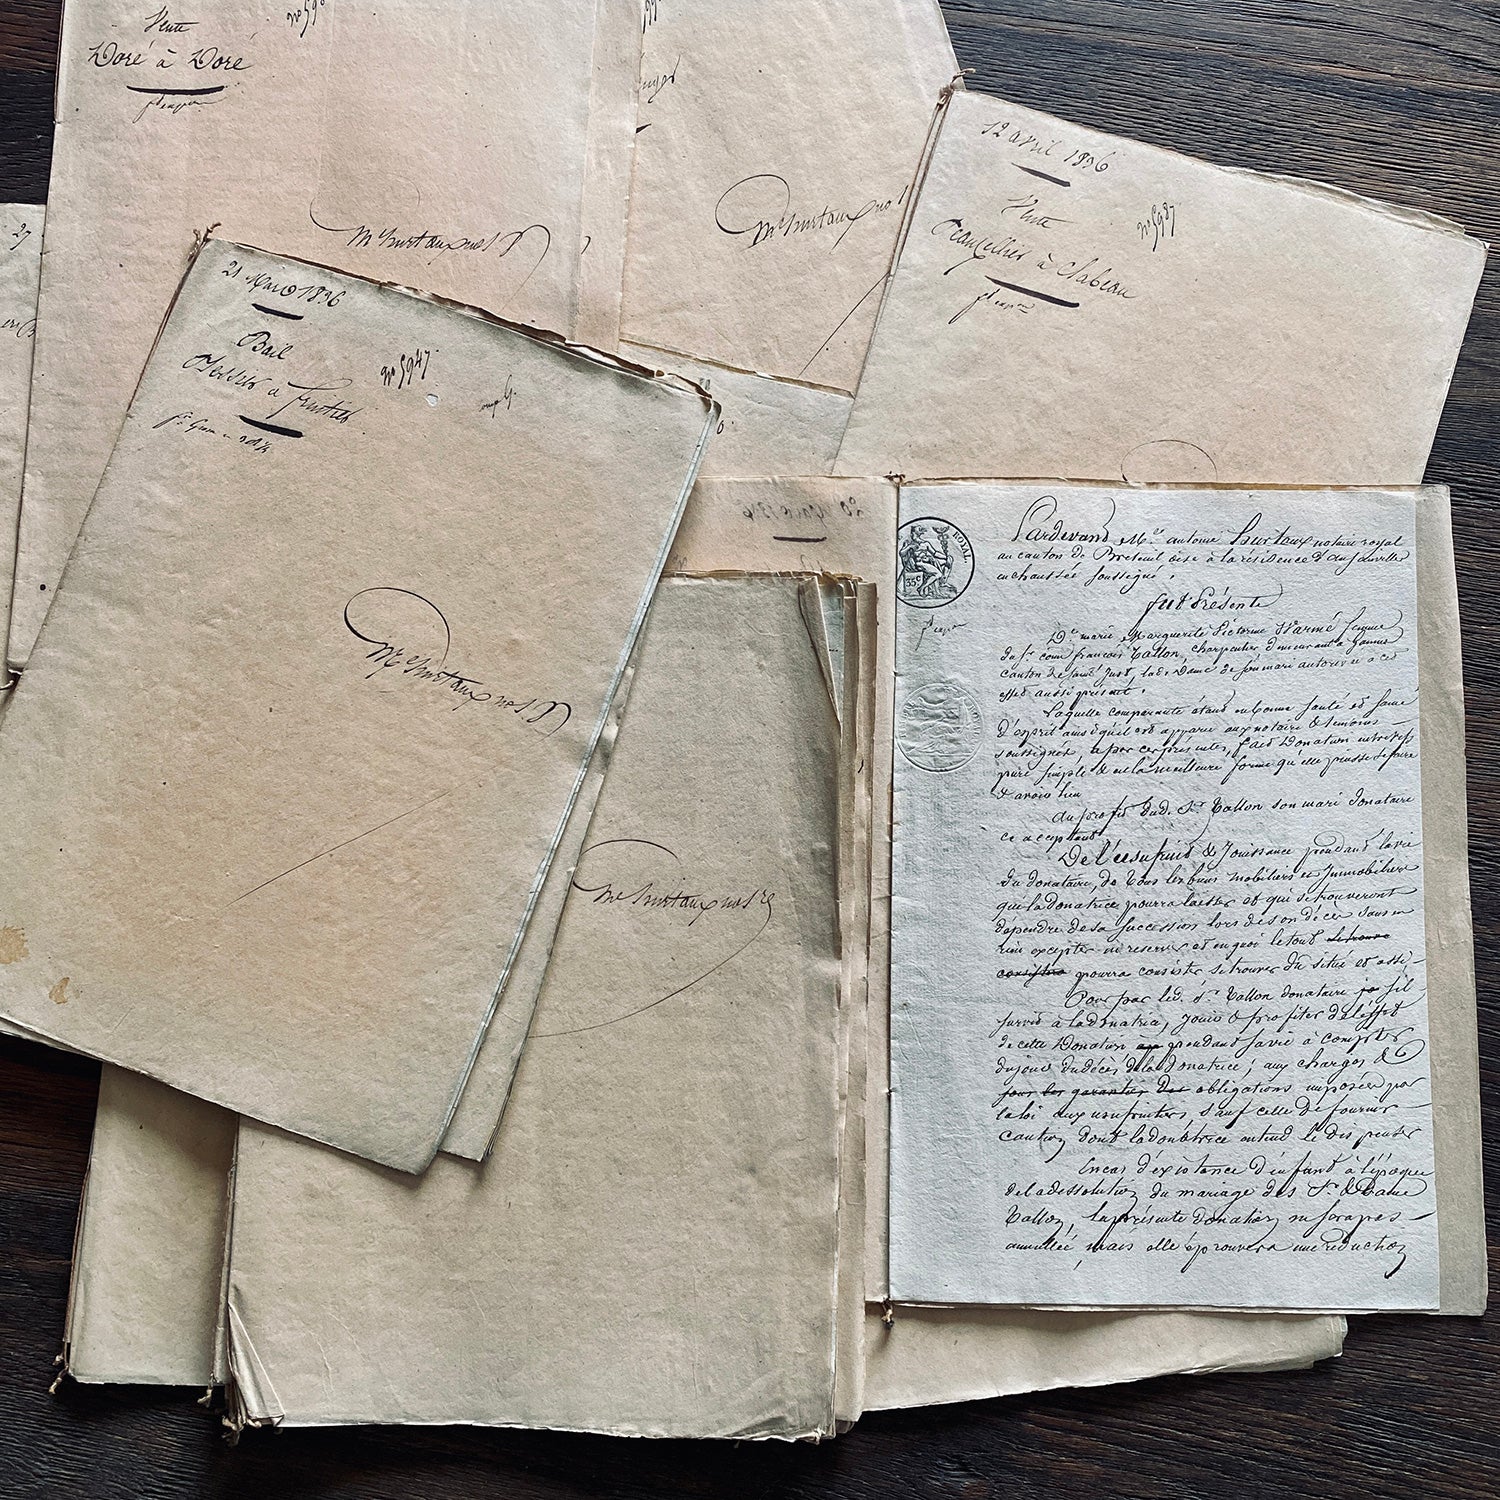 Vente
Doré à Doré
Me hurtaux
Me hurtaux
12 avril 1836
Vente
à Sabeau
no 5987
27
21 Mars 1836
Bail
à
no 5947
Me hurtaux
Me hurtaux
20 Mars 1836
ROYAL
35c
Pardevant Me antoine hurtaux notaire royal
au canton de Breteuil oise à la résidence de
en chaussée soussigné,
fut Présente
De marie Marguerite Victorine Warmé femme
du Sr come françois Tallon, charpentier demeurant à
canton de Saint Just, lad. Dame de son mari autorisée à cet
effet aussi présent.
Laquelle comparante étant en bonne santé et saine
d'esprit ainsi qu'il est apparu aux notaire & temoins
soussignés, a par ces présentes, fait Donation entrevifs
pure simple & en la meilleure forme qu'elle puisse se faire
& avoir lieu
au profit dud. Sr Tallon son mari donataire
ce acceptant
De l'usufruit & Jouissance pendant la vie
du donataire, de tous les biens mobiliers et Immobiliers
que la donatrice pourra laisser et qui se trouveront
dépendre de sa succession lors de son décès sans en
rien excepter ni reserver et en quoi le tout se trouve
consister pourra consister se trouver dû situé et assi-
Pour par led. Sr Tallon donataire s'il
survit à la donatrice, jouir & profiter de l'effet
de cette Donation pendant sa vie à compter
du jour du décès de la donatrice; aux charges &
obligations imposées par
la loi aux usufruitiers sauf celle de fournir
caution dont la donatrice entend le dispenser
En cas d'existance d'enfant à l'époque
de la dessolution du mariage des Sr & Dame
Tallon, la présente donation ne sera pas
annullée, mais elle éprouvera une réduction